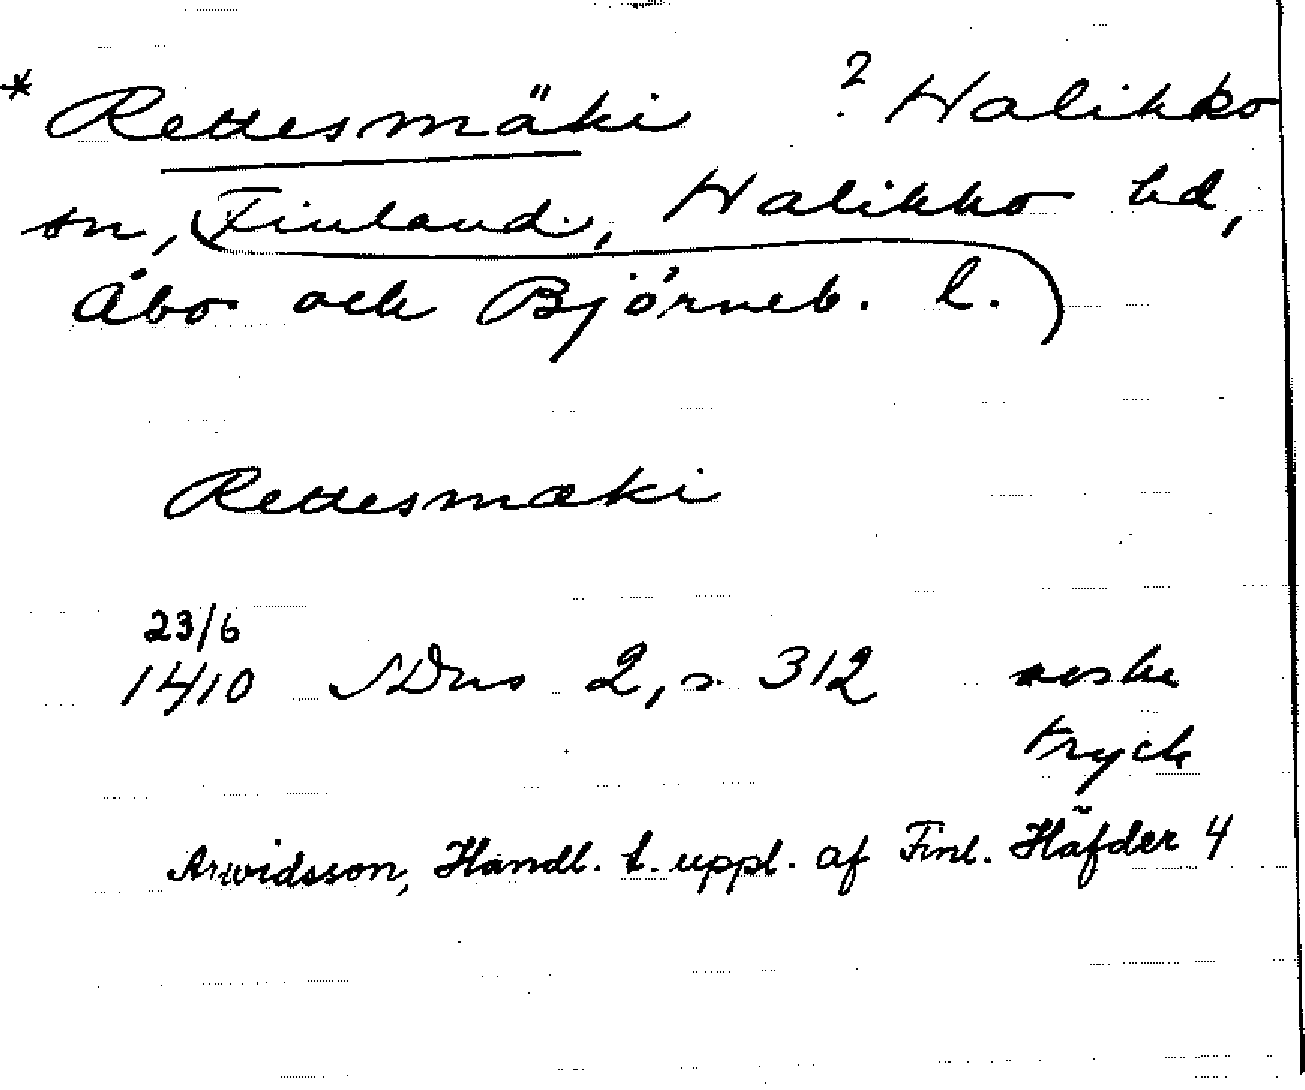 * Rettesmäki ? Halikko
sn, (Finland, Halikko hd,
Åbo och Björneb. l.)
Rettesmæki
23/6
1410 SDns 2, s. 312
tryck
Arwidsson, Handl. t. uppl. af Finl. Häfder 4